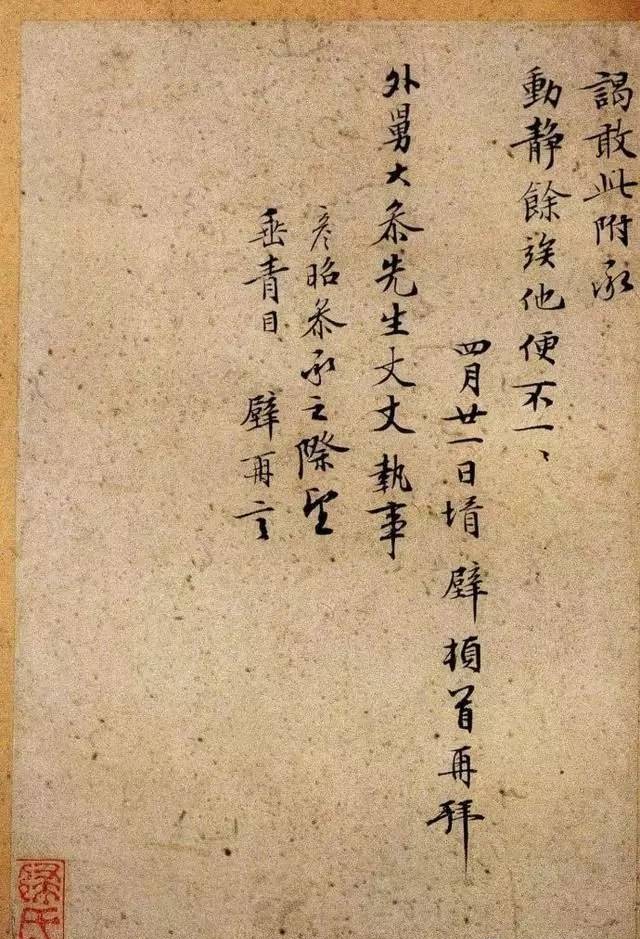 謁敢此附承
動靜餘誒他便不一、
四月廿一日壻 壁頓首再拜
外舅大叅先生丈丈執事
彦昭叅承之際望
垂青目 壁再言